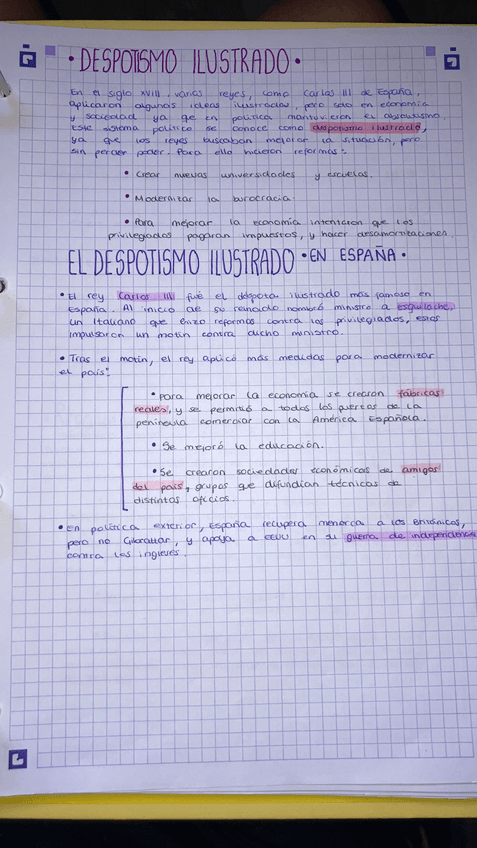 • DESPOTISMO ILUSTRADO •
En el siglo XVIII, varios reyes, como Carlos III de España,
aplicaron algunas ideas ilustradas, pero solo en economía
y sociedad ya que en política mantuvieron el absolutismo.
Este sistema político se conoce como despotismo ilustrado,
ya que los reyes buscaban mejorar la situación, pero
sin perder poder. Para ello hicieron reformas:
• Crear nuevas universidades y escuelas.
• Modernizar la burocracia.
• Para mejorar la economía intentaron que los
privilegiados pagaran impuestos, y hacer desamortizaciones
EL DESPOTISMO ILUSTRADO • EN ESPAÑA •
• El rey Carlos III fué el déspota ilustrado más famoso en
España. Al inicio de su reinado nombró ministro a esquilache,
un italiano que hizo reformas contra los privilegiados, estos
impulsaron un motín contra dicho ministro.
• Tras el motín, el rey aplicó más medidas para modernizar
el país:
• Para mejorar la economía se crearon fábricas
reales, y se permitió a todos los puertos de la
península comerciar con la América Española.
• Se mejoró la educación.
• Se crearon sociedades económicas de amigos
del país, grupos que difundían técnicas de
distintos oficios.
• En política exterior, España recupera menorca a los Británicos,
pero no Gibraltar, y apoya a EEUU en su guerra de independencia
contra los ingleses.